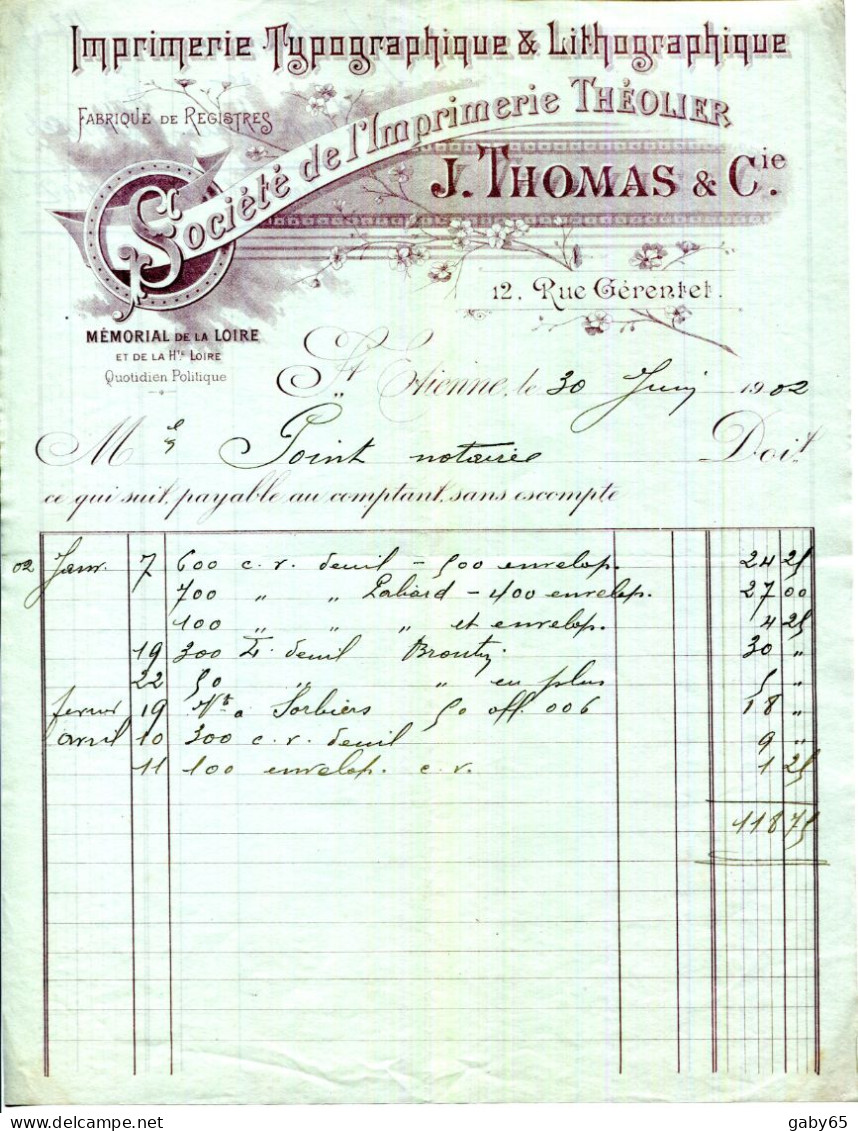 Imprimerie Typographique & Lithographique
Fabrique de Registres
Société de l'Imprimerie THÉOLIER
J. THOMAS & Cie.
12, Rue Gérentet.
MÉMORIAL DE LA LOIRE
ET DE LA Hte LOIRE
Quotidien Politique
St Etienne, le 30 Juin 1902
M Point notaire Doit
ce qui suit, payable au comptant, sans escompte
02 Janv. 7 600 c. v. deuil - 500 envelop. 24 25
700 " " - 400 envelop. 27 00
100 " " " et envelop. 4 25
19 300 deuil 30 "
22 50 " " en plus 5 "
fevrier 19 Sorbiers 50 aff. 006 18 "
avril 10 300 c. v. deuil 9 "
11 100 envelop. c. v. 1 25
118 75
gaby65